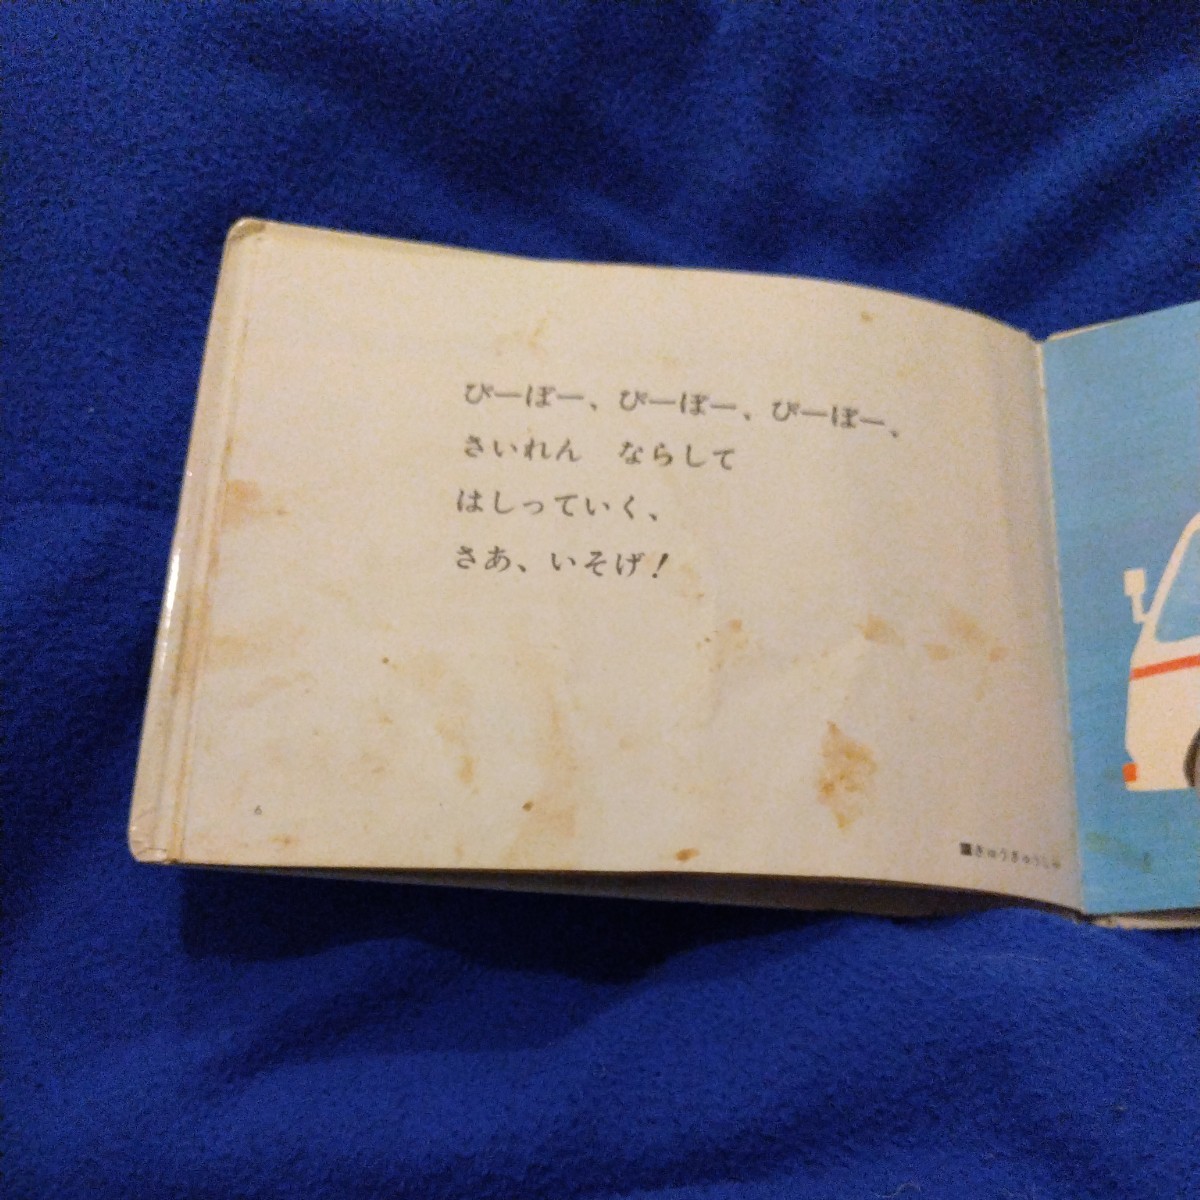 ぴーぽー、ぴーぽー、ぴーぽー、
さいれん　ならして
はしっていく、
さあ、いそげ！
6
■きゅうきゅうしゃ